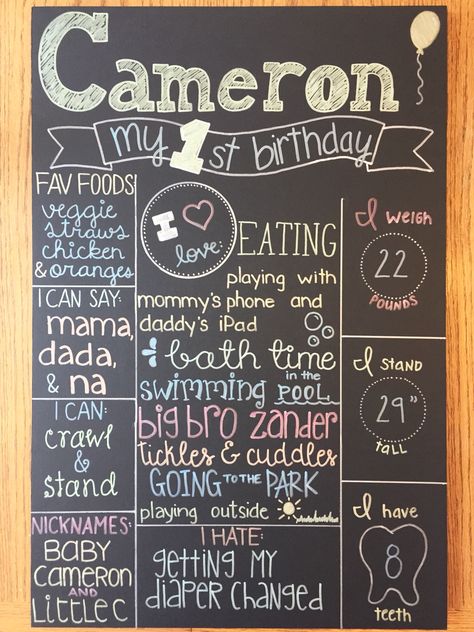 Cameron
my 1st birthday
FAV FOODS
veggie
straws
chicken
& oranges
I CAN SAY:
mama,
dada,
& na
I CAN:
crawl
&
stand
NICKNAMES:
BABY
CAMERON
AND
LITTLE C
I
love:
EATING
playing with
mommy's phone and
daddy's iPad
bath time
swimming in the POOL
big bro zander
tickles & cuddles
GOING TO THE PARK
playing outside
I HATE:
getting MY
DIAPER CHANGED
I WEIGH
22
POUNDS
I STAND
29"
tall
I have
8
teeth